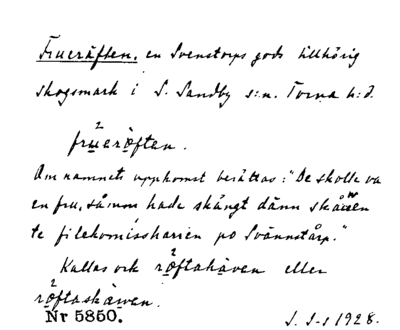 Frueräften, en Svenstorps gods tillhörig
skogsmark i S. Sandby s:n. Torna h:d.
frueröften.
Om namnets uppkomst berättas: "De skolle va
en fru, såmm hade skängt dänn skåwen
te filekomissharien po Svännstårp."
Kallas ock röftahåven eller
röftaskåwen.
Nr 5850.
S. S-s 1928.